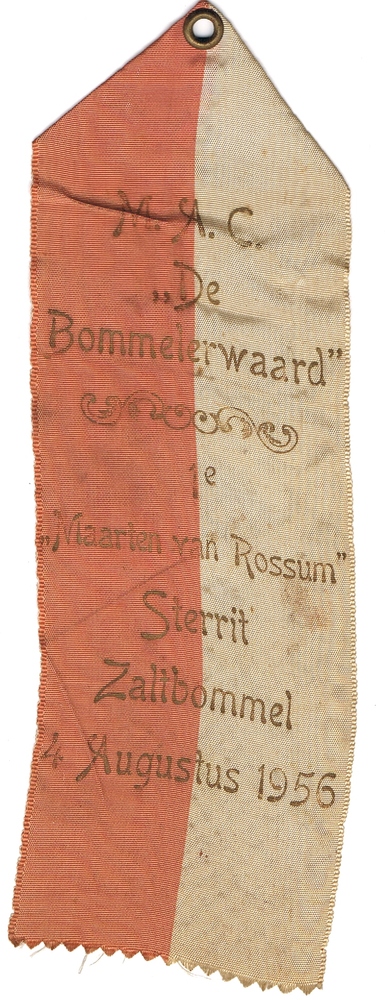 M. A. C.
„De
Bommelerwaard”
1e
„Maarten van Rossum”
Sterrit
Zaltbommel
4 Augustus 1956